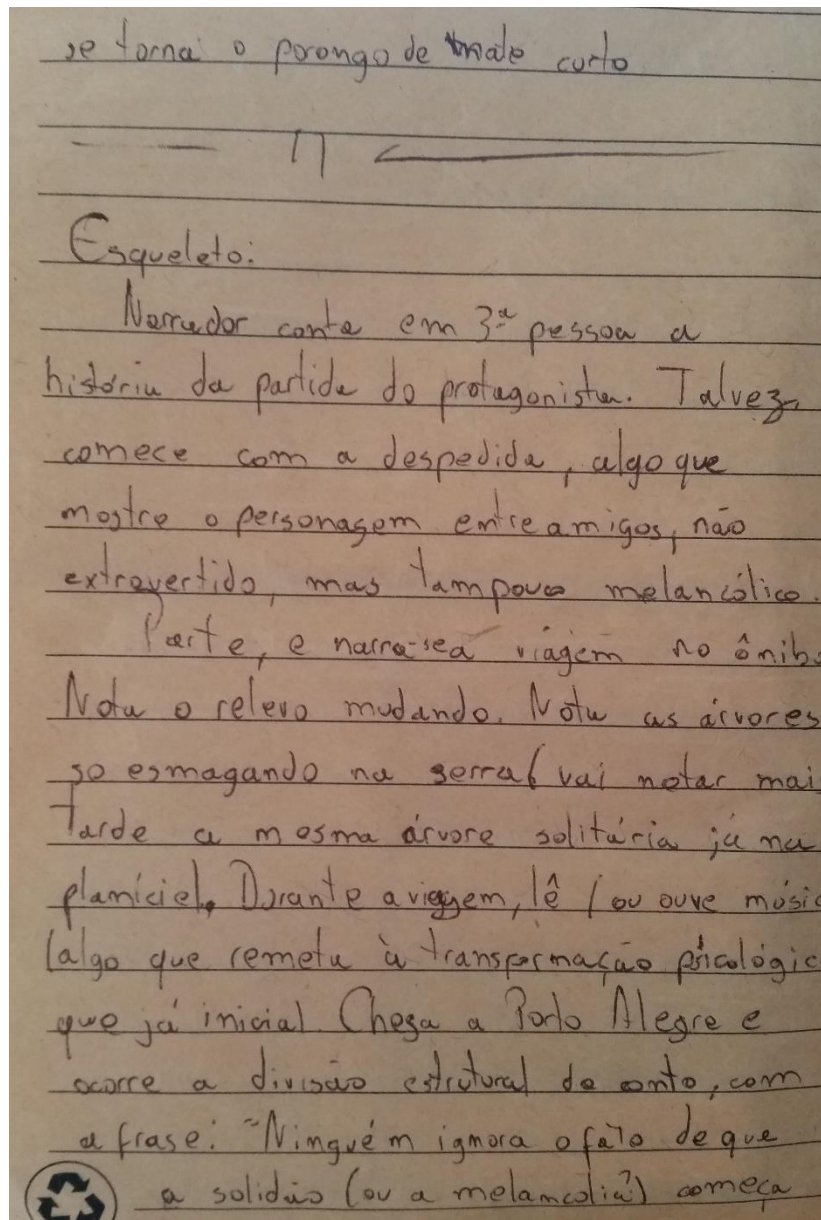 se torna o porongo de mate curto
Esqueleto:
Narrador conta em 3ª pessoa a
história da partida do protagonista. Talvez
comece com a despedida, algo que
mostre o personagem entre amigos, não
extrovertido, mas tampouco melancólico.
Parte, e narra-se a viagem no ônib
Nota o relevo mudando. Nota as árvores
se esmagando na serra (vai notar mai
tarde a mesma árvore solitária já na
planície). Durante a viagem, lê (ou ouve músic
(algo que remeta à transformação psicológic
que já inicia). Chega a Porto Alegre e
ocorre a divisão estrutural do conto, com
a frase: "Ninguém ignora o fato de que
a solidão (ou a melancolia?) começa